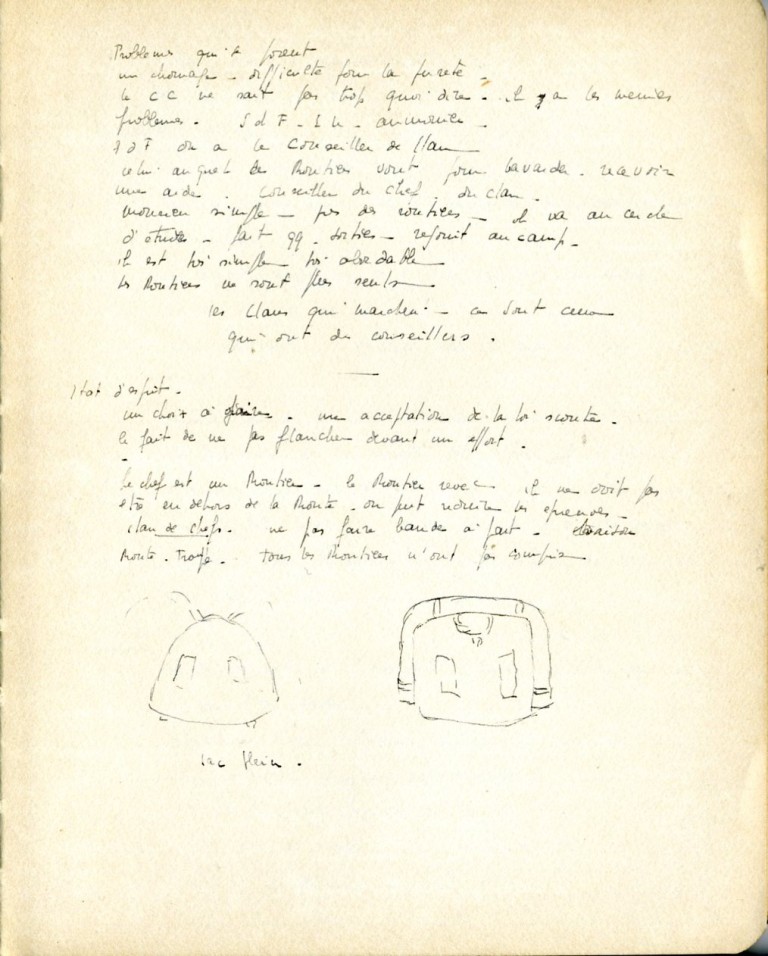 Problemes qui se posent
un chomage - difficulté pour la pureté -
le CC ne sait pas trop quoi dire - il y a les memes
problemes - S d F - aumonier -
F d F on a le Conseiller de Clan
celui auquel les Routiers vont pour bavarder - recevoir
une aide - Conseiller du chef - du clan -
monsieur simple - pas des routiers - il va au cercle
d'études - fait qq - sorties - rejoint au camp -
il est toi simple toi abordable
les Routiers ne sont plus seuls
les Clans qui marchent - ce sont ceux
qui ont des conseillers .
Etat d'esprit -
un choix à faire - une acceptation de la loi scoute -
le fait de ne pas flancher devant un effort .
-
le chef est un Routier - le Routier il ne doit pas
etre en dehors de la Route - on peut réduire les epreuves -
Clan de chefs - ne pas faire bande à part - liaison
Route - Troupe - tous les Routiers n'ont pas compris
sac plein .